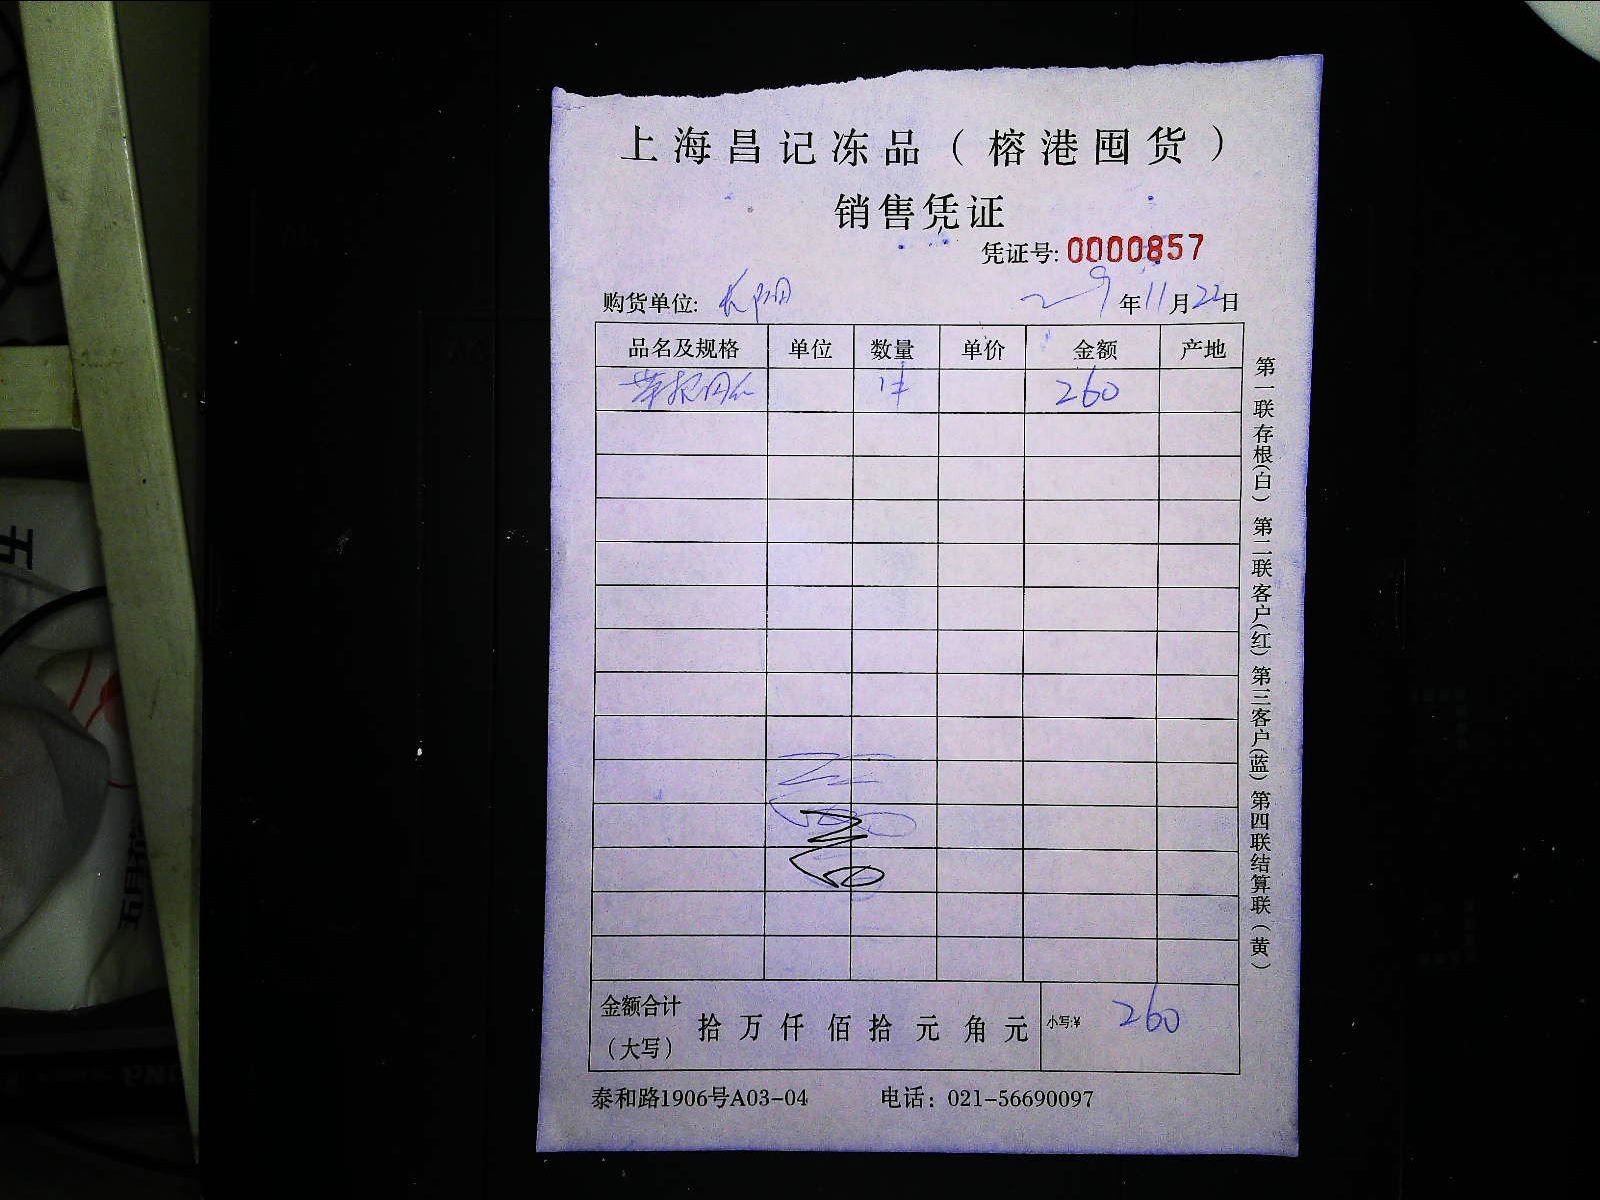 上海昌记冻品（榕港囤货）
销售凭证
凭证号: 0000857
购货单位: 年11月22日
品名及规格 单位 数量 单价 金额 产地
1件 260
金额合计（大写） 拾 万 仟 佰 拾 元 角 元 小写:¥ 260
泰和路1906号A03-04 电话：021-56690097
第一联存根（白）第二联客户（红）第三客户（蓝）第四联结算联（黄）
五